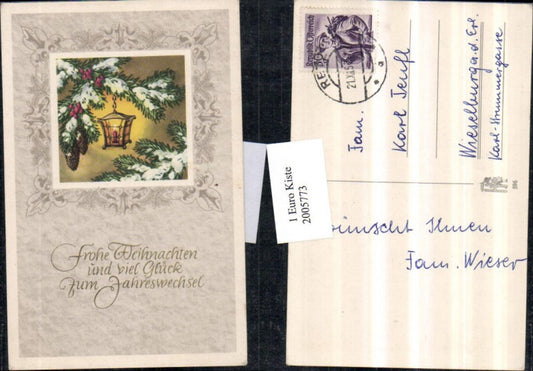 Frohe Weihnachten
und viel Glück
zum Jahreswechsel
1 Euro Kiste
2005773
Republik Österreich
21.XII.5
Fam.
Karl Teufl
Wieselburg a.d. Erl.
Karl-Brunnergasse
596
wünscht Ihnen
Fam. Wieser